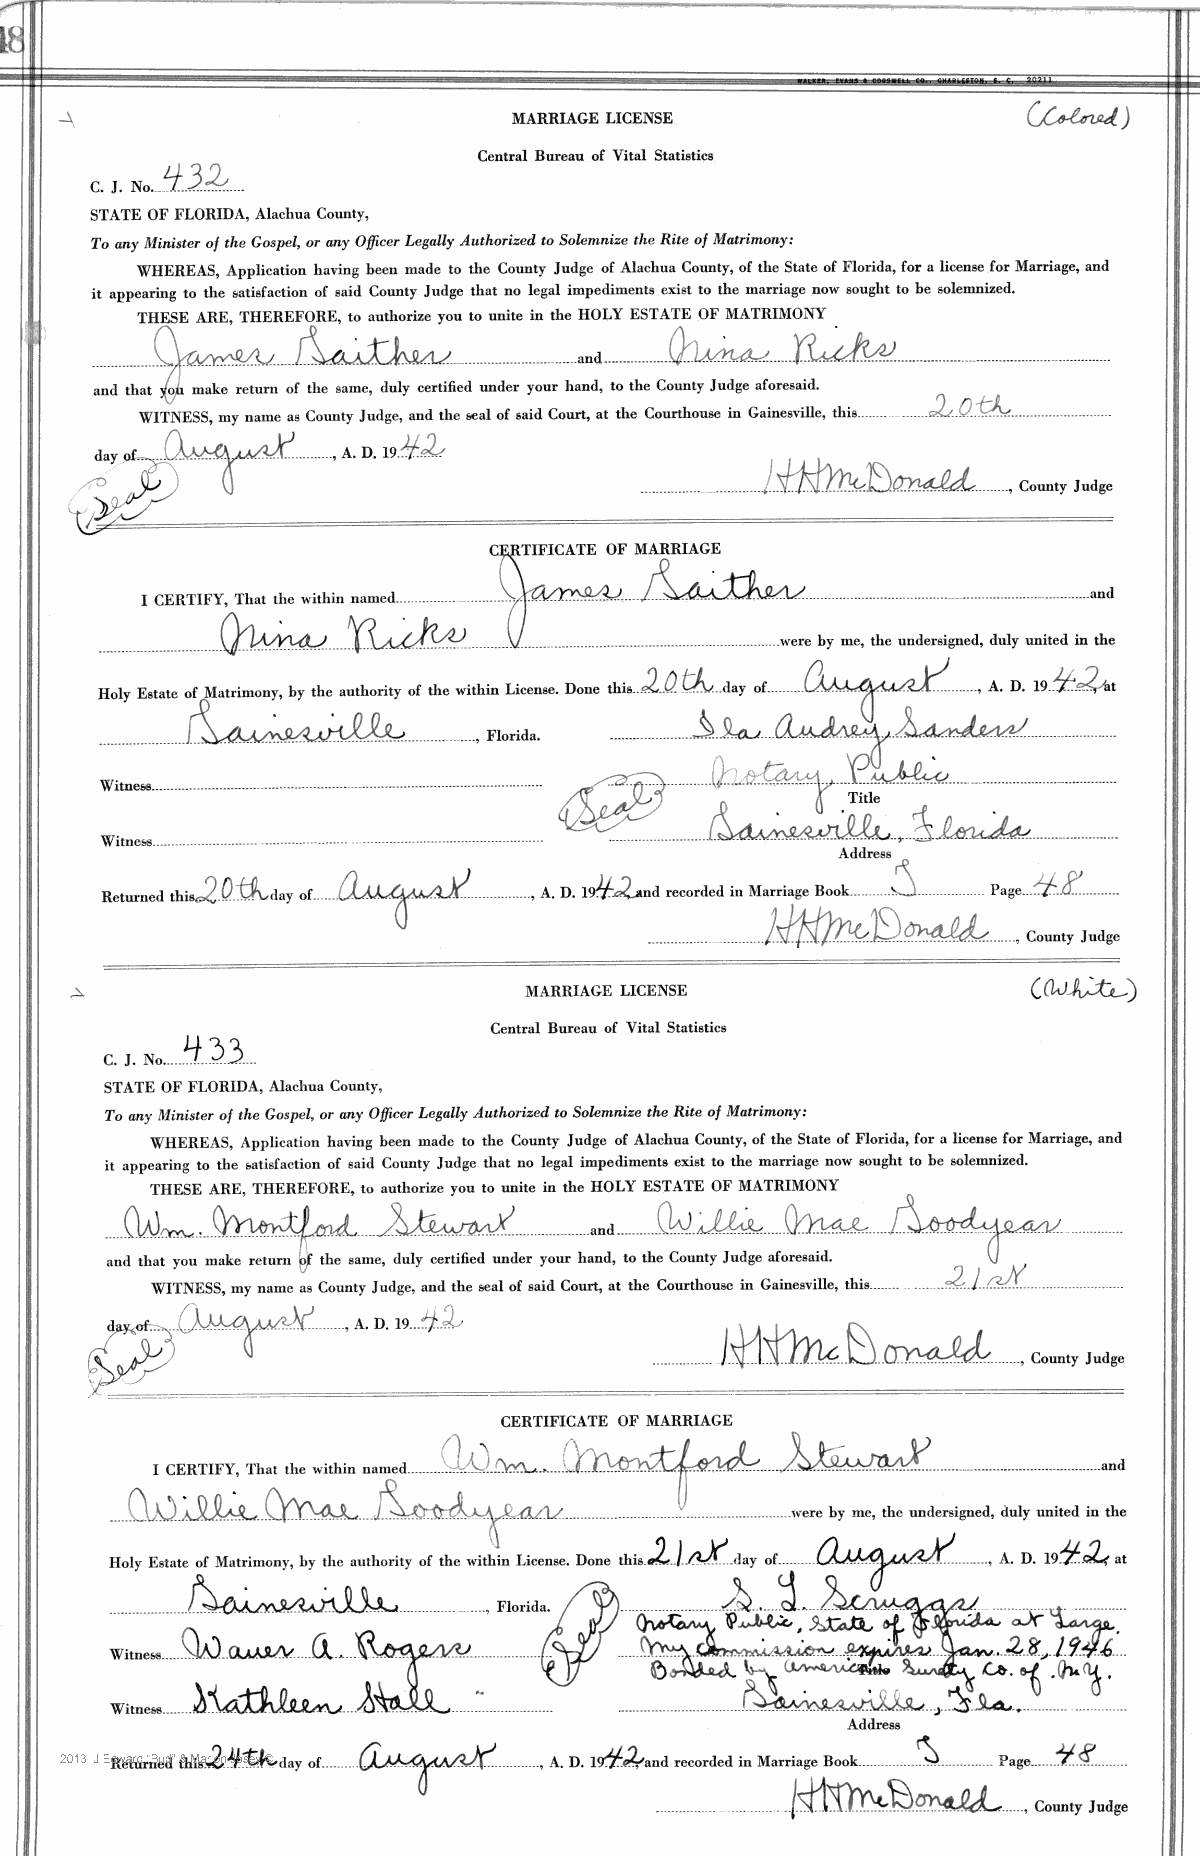 48
WALKER, EVANS & COGSWELL CO., CHARLESTON, S. C. 20211
MARRIAGE LICENSE (Colored)
Central Bureau of Vital Statistics
C. J. No. 432
STATE OF FLORIDA, Alachua County,
To any Minister of the Gospel, or any Officer Legally Authorized to Solemnize the Rite of Matrimony:
WHEREAS, Application having been made to the County Judge of Alachua County, of the State of Florida, for a license for Marriage, and
it appearing to the satisfaction of said County Judge that no legal impediments exist to the marriage now sought to be solemnized.
THESE ARE, THEREFORE, to authorize you to unite in the HOLY ESTATE OF MATRIMONY
James Gaither and Nina Ricks
and that you make return of the same, duly certified under your hand, to the County Judge aforesaid.
WITNESS, my name as County Judge, and the seal of said Court, at the Courthouse in Gainesville, this 20th
day of August, A. D. 1942
(Seal) HHMcDonald, County Judge
CERTIFICATE OF MARRIAGE
I CERTIFY, That the within named James Gaither and
Nina Ricks were by me, the undersigned, duly united in the
Holy Estate of Matrimony, by the authority of the within License. Done this 20th day of August, A. D. 1942, at
Gainesville, Florida. Ila Audrey Sanders
Witness (Seal) Notary Public
Title
Witness Gainesville, Florida
Address
Returned this 20th day of August, A. D. 1942 and recorded in Marriage Book J Page 48
HHMcDonald, County Judge
MARRIAGE LICENSE (White)
Central Bureau of Vital Statistics
C. J. No. 433
STATE OF FLORIDA, Alachua County,
To any Minister of the Gospel, or any Officer Legally Authorized to Solemnize the Rite of Matrimony:
WHEREAS, Application having been made to the County Judge of Alachua County, of the State of Florida, for a license for Marriage, and
it appearing to the satisfaction of said County Judge that no legal impediments exist to the marriage now sought to be solemnized.
THESE ARE, THEREFORE, to authorize you to unite in the HOLY ESTATE OF MATRIMONY
Wm. Montford Stewart and Willie Mae Goodyear
and that you make return of the same, duly certified under your hand, to the County Judge aforesaid.
WITNESS, my name as County Judge, and the seal of said Court, at the Courthouse in Gainesville, this 21st
day of August, A. D. 1942
(Seal) HHMcDonald, County Judge
CERTIFICATE OF MARRIAGE
I CERTIFY, That the within named Wm. Montford Stewart and
Willie Mae Goodyear were by me, the undersigned, duly united in the
Holy Estate of Matrimony, by the authority of the within License. Done this 21st day of August, A. D. 1942, at
Gainesville, Florida. (Seal) S. L. Scruggs
Notary Public, State of Florida at Large.
Witness Waver A. Rogers My commission expires Jan. 28, 1946
Bonded by American Surety Co. of N.Y.
Witness Kathleen Hall Gainesville, Fla.
Address
2013 J Edward "Bud" &
Returned this 24th day of August, A. D. 1942 and recorded in Marriage Book J Page 48
HHMcDonald, County Judge